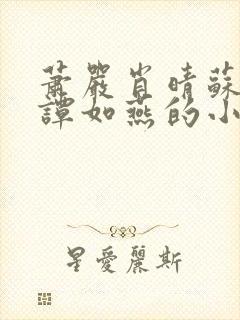 蕭嚴肖晴蘇
譚如燕的小
星愛麗斯